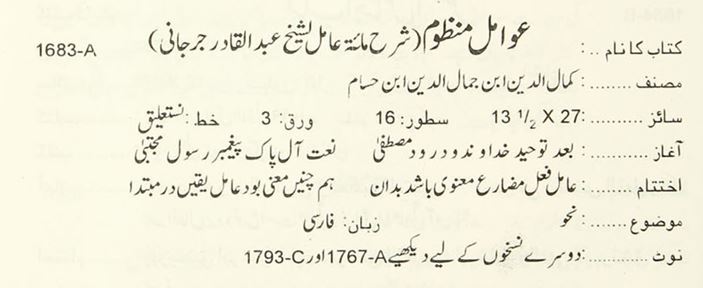 کتاب کا نام ..: عوامل منظوم (شرح مائۃ عامل لشیخ عبدالقادر جرجانی) 1683-A
مصنف ........: کمال الدین ابن جمال الدین ابن حسام
سائز ..........: 27 X 13 1/2 سطور: 16 ورق: 3 خط: نستعلیق
آغاز ..........: بعد توحید خداوند و درود مصطفیٰ نعت آل پاک پیغمبر رسول مجتبیٰ
اختتام ........: عامل فعل مضارع معنوی باشد بدان ہم چنیں معنی بود عامل یقیں در مبتدا
موضوع .......: نحو زبان: فارسی
نوٹ ..........: دوسرے نسخوں کے لیے دیکھیے 1767-A اور 1793-C